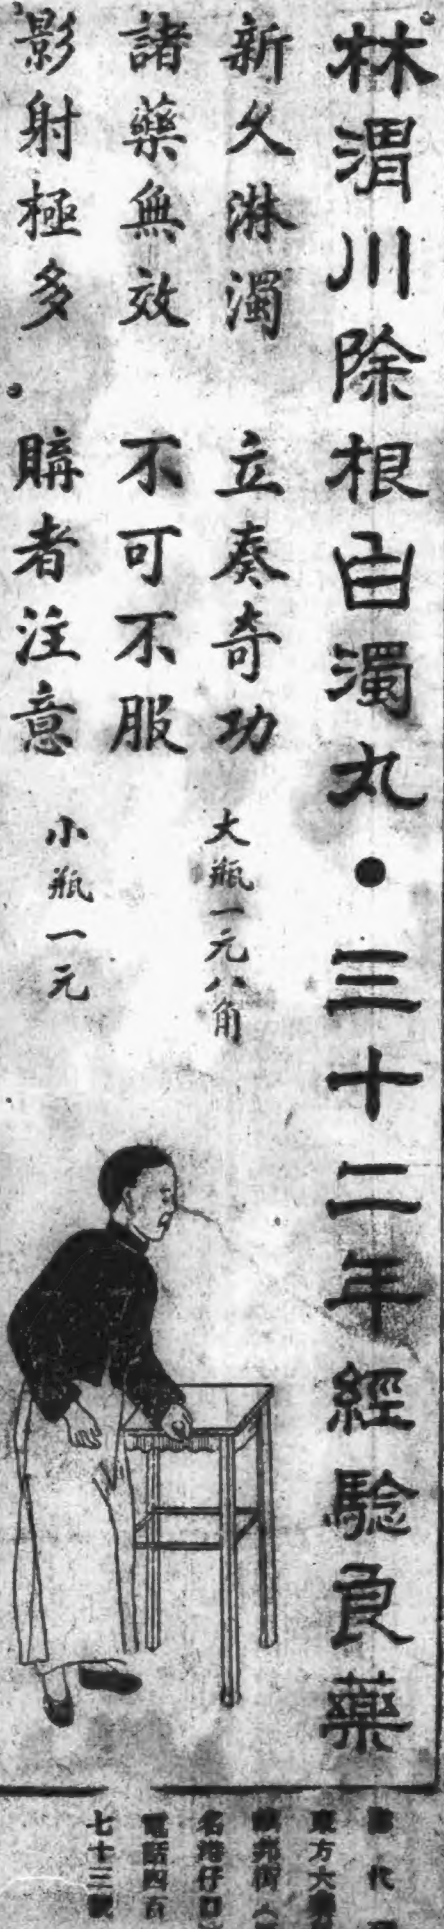 林渭川除根白濁丸•三十二年經驗良藥
新久淋濁 立奏奇功
諸藥無效 不可不服
影射極多 購者注意
大瓶一元八角
小瓶一元
代
東方大
街
名港仔口
電話四百
七十三號